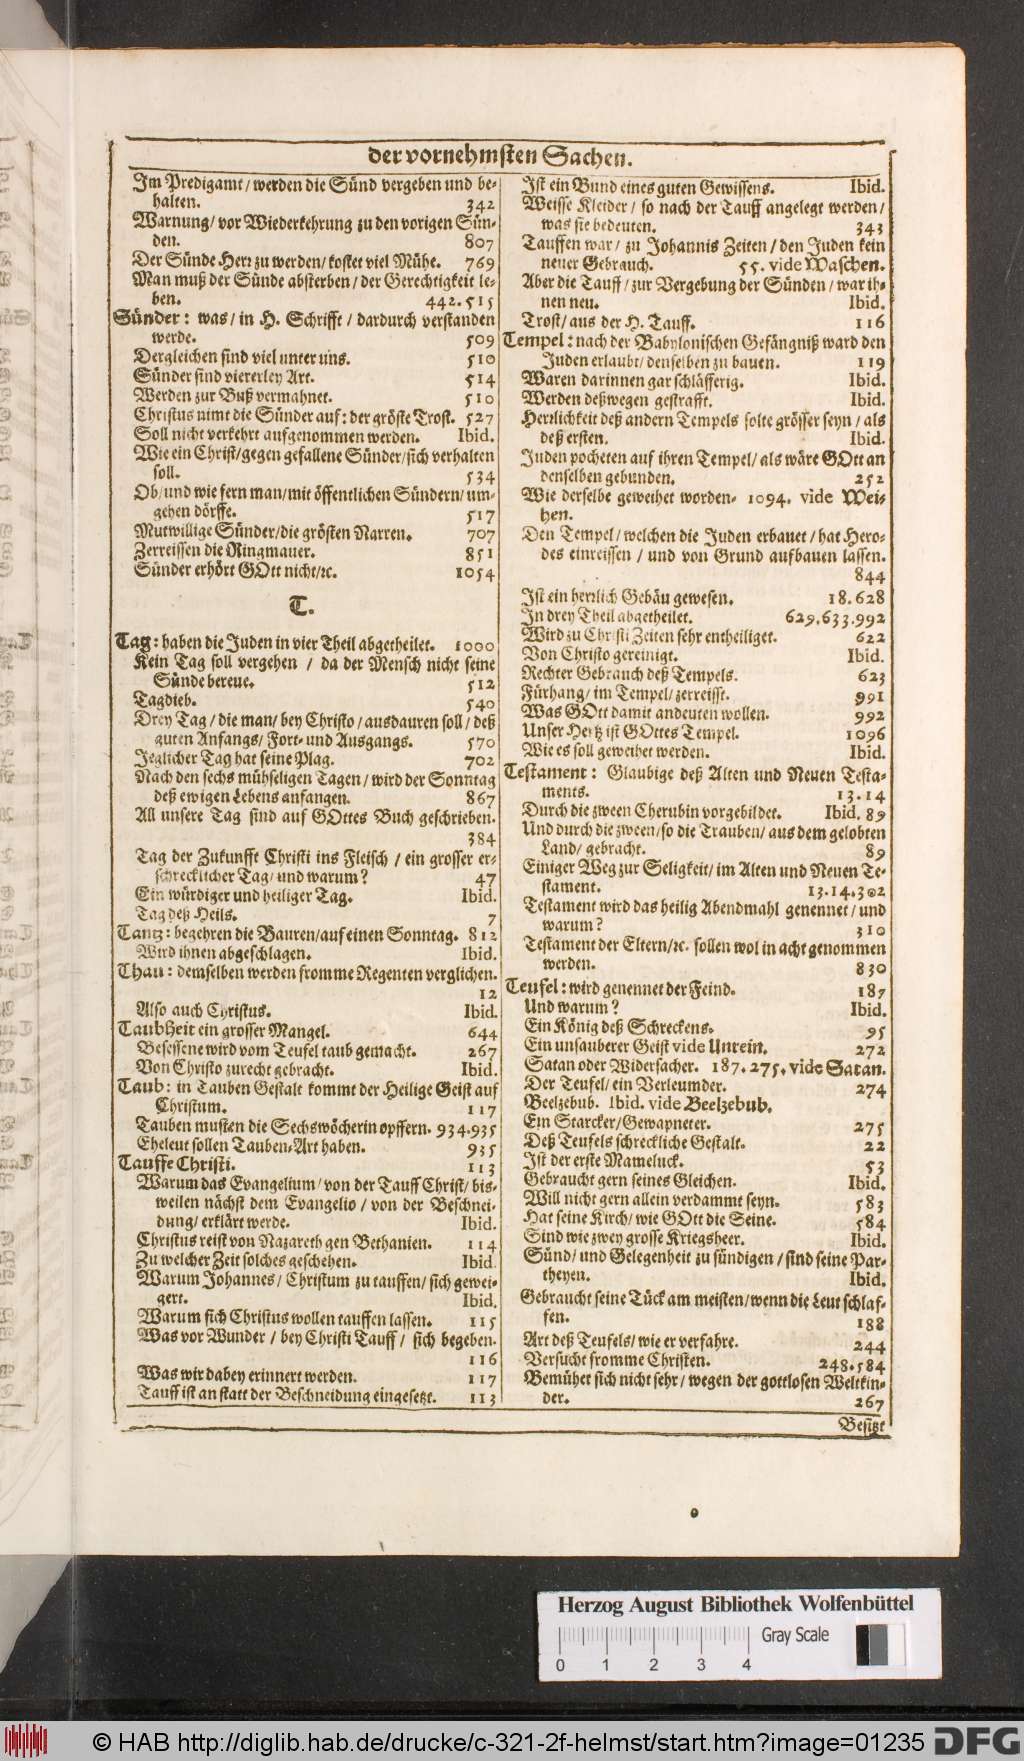 der vornehmsten Sachen.
Im Predigamt / werden die Sünd vergeben und be-
halten. 342
Warnung / vor Wiederkehrung zu den vorigen Sün-
den. 807
Der Sünde Herr zu werden / kostet viel Mühe. 769
Man muß der Sünde absterben / der Gerechtigkeit le-
ben. 442. 515
Sünder: was / in H. Schrifft / dardurch verstanden
werde. 509
Dergleichen sind viel unter uns. 510
Sünder sind viererley Art. 514
Werden zur Buß vermahnet. 510
Christus nimt die Sünder auf: der gröste Trost. 527
Soll nicht verkehrt aufgenommen werden. Ibid.
Wie ein Christ / gegen gefallene Sünder / sich verhalten
soll. 534
Ob / und wie fern man / mit öffentlichen Sündern / um-
gehen dörffe. 517
Mutwillige Sünder / die grösten Narren. 707
Zerreissen die Ringmauer. 851
Sünder erhört GOtt nicht / ꝛc. 1054
T.
Tag: haben die Juden in vier Theil abgetheilet. 1000
Kein Tag soll vergehen / da der Mensch nicht seine
Sünde bereue. 512
Tagdieb. 540
Drey Tag / die man / bey Christo / ausdauren soll / deß
guten Anfangs / Fort- und Ausgangs. 570
Jeglicher Tag hat seine Plag. 702
Nach den sechs mühseligen Tagen / wird der Sonntag
deß ewigen Lebens anfangen. 867
All unsere Tag sind auf GOttes Buch geschrieben.
384
Tag der Zukunfft Christi ins Fleisch / ein grosser er-
schrecklicher Tag / und warum? 47
Ein würdiger und heiliger Tag. Ibid.
Tag deß Heils. 7
Tantz: begehren die Bauren / auf einen Sonntag. 812
Wird ihnen abgeschlagen. Ibid.
Thau: demselben werden fromme Regenten verglichen.
12
Also auch Christus. Ibid.
Taubheit ein grosser Mangel. 644
Besessene wird vom Teufel taub gemacht. 267
Von Christo zurecht gebracht. Ibid.
Taub: in Tauben Gestalt kommt der Heilige Geist auf
Christum. 117
Tauben musten die Sechswöcherin opffern. 934. 935
Eheleut sollen Tauben-Art haben. 935
Tauffe Christi. 113
Warum das Evangelium / von der Tauff Christ / bis-
weilen nächst dem Evangelio / von der Beschnei-
dung / erklärt werde. Ibid.
Christus reist von Nazareth gen Bethanien. 114
Zu welcher Zeit solches geschehen. Ibid
Warum Johannes / Christum zu tauffen / sich gewei-
gert. Ibid.
Warum sich Christus wollen tauffen lassen. 115
Was vor Wunder / bey Christi Tauff / sich begeben.
116
Was wir dabey erinnert werden. 117
Tauff ist an statt der Beschneidung eingesetzt. 113
Ist ein Bund eines guten Gewissens. Ibid.
Weisse Kleider / so nach der Tauff angelegt werden /
was sie bedeuten. 343
Tauffen war / zu Johannis Zeiten / den Juden kein
neuer Gebrauch. 55. vide Waschen.
Aber die Tauff / zur Vergebung der Sünden / war ih-
nen neu. Ibid.
Trost / aus der H. Tauff. 116
Tempel: nach der Babylonischen Gefängniß ward den
Juden erlaubt / denselben zu bauen. 119
Waren darinnen gar schläfferig. Ibid.
Werden deßwegen gestrafft. Ibid.
Herrlichkeit deß andern Tempels solte grösser seyn / als
deß ersten. Ibid.
Juden pocheten auf ihren Tempel / als wäre GOtt an
denselben gebunden. 252
Wie derselbe geweihet worden. 1094. vide Wei-
hen.
Den Tempel / welchen die Juden erbauet / hat Hero-
des einreissen / und von Grund aufbauen lassen.
844
Ist ein herrlich Gebäu gewesen. 18. 628
In drey Theil abgetheilet. 629. 633. 992
Wird zu Christi Zeiten sehr entheiliget. 622
Von Christo gereinigt. Ibid.
Rechter Gebrauch deß Tempels. 623
Fürhang / im Tempel / zerreisst. 991
Was GOtt damit andeuten wollen. 992
Unser Hertz ist GOttes Tempel. 1096
Wie es soll geweihet werden. Ibid.
Testament: Glaubige deß Alten und Neuen Testa-
ments. 13. 14
Durch die zween Cherubin vorgebildet. Ibid. 89
Und durch die zween / so die Trauben / aus dem gelobten
Land / gebracht. 89
Einiger Weg zur Seligkeit / im Alten und Neuen Te-
stament. 13. 14. 302
Testament wird das heilig Abendmahl genennet / und
warum? 310
Testament der Eltern / ꝛc. sollen wol in acht genommen
werden. 830
Teufel: wird genennet der Feind. 187
Und warum? Ibid.
Ein König deß Schreckens. 95
Ein unsauberer Geist vide Unrein. 272
Satan oder Widersacher. 187. 275. vide Satan.
Der Teufel / ein Verleumder. 274
Beelzebub. Ibid. vide Beelzebub.
Ein Starcker / Gewapneter. 275
Deß Teufels schreckliche Gestalt. 22
Ist der erste Mameluck. 53
Gebraucht gern seines Gleichen. Ibid.
Will nicht gern allein verdammt seyn. 583
Hat seine Kirch / wie GOtt die Seine. 584
Sind wie zwey grosse Kriegsheer. Ibid.
Sünd / und Gelegenheit zu sündigen / sind seine Par-
theyen. Ibid.
Gebraucht seine Tück am meisten / wenn die Leut schlaf-
fen. 188
Art deß Teufels / wie er verfahre. 244
Versucht fromme Christen. 248. 584
Bemühet sich nicht sehr / wegen der gottlosen Weltkin-
der. 267
Besitzt
Herzog August Bibliothek Wolfenbüttel
Gray Scale
0 1 2 3 4
© HAB http://diglib.hab.de/drucke/c-321-2f-helmst/start.htm?image=01235
DFG